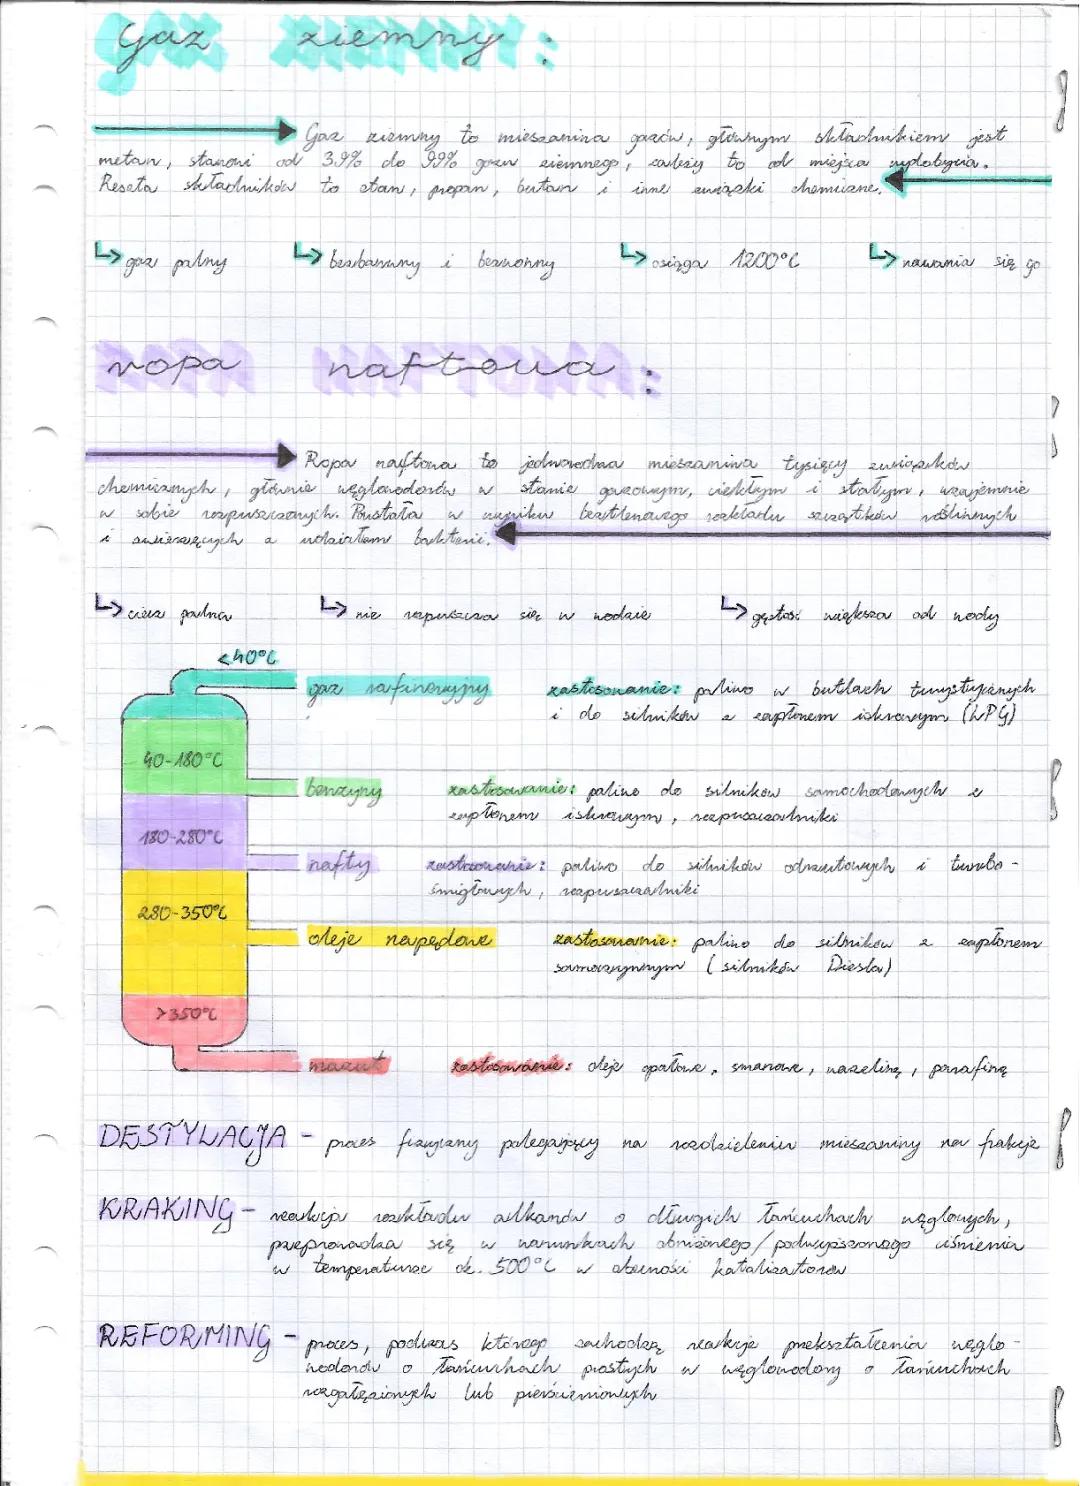 gaz ziemny:
Gaz ziemny to mieszanina gazów, głównym składnikiem jest
metan, stanowi od 3.9% do 99% gazu ziemnego, zależy to od miejsca wydobycia.
Reszta składników to etan, propan, butan i inne związki chemiczne.
gaz palny bezbarwny i bezwonny osiąga 1200°C nawania się go
ropa naftowa:
Ropa naftowa to jednorodna mieszanina tysięcy związków
chemicznych, głównie węglowodorów w stanie gazowym, ciekłym i stałym, wzajemnie
w sobie rozpuszczonych. Powstała w wyniku beztlenowego rozkładu szczątków roślinnych
i zwierzęcych z udziałem bakterii.
ciecz palna nie rozpuszcza się w wodzie gęstość większa od wody
<40°C
gaz rafineryjny zastosowanie: paliwo w butlach turystycznych
i do silników z zapłonem iskrowym (LPG)
40-180°C
benzyny zastosowanie: paliwo do silników samochodowych z
zapłonem iskrowym, rozpuszczalniki
180-280°C
nafty zastosowanie: paliwo do silników odrzutowych i turbo-
śmigłowych, rozpuszczalniki
280-350°C
oleje napędowe zastosowanie: paliwo do silników z zapłonem
samoczynnym (silników Diesla)
>350°C
mazut zastosowanie: oleje opałowe, smarowe, wazelinę, parafinę
DESTYLACJA - proces fizyczny polegający na rozdzieleniu mieszaniny na frakcje
KRAKING - reakcja rozkładu alkanów o długich łańcuchach węglowych,
przeprowadza się w warunkach obniżonego/podwyższonego ciśnienia
w temperaturze ok. 500°C w obecności katalizatorów
REFORMING - proces, podczas którego zachodzą reakcje przekształcenia węglo-
wodorów o łańcuchach prostych w węglowodory o łańcuchach
rozgałęzionych lub pierścieniowych